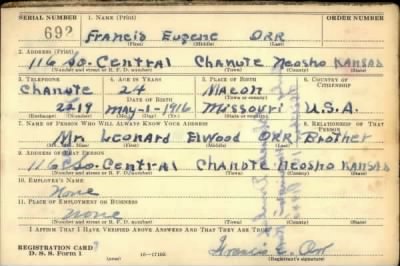 SERIAL NUMBER 1. NAME (Print) ORDER NUMBER
692 Francis Eugene Orr
(First) (Middle) (Last)
2. ADDRESS (Print)
116 So. Central Chanute Neosho Kansas
(Number and street or R. F. D. number) (Town) (County) (State)
3. TELEPHONE 4. AGE IN YEARS 5. PLACE OF BIRTH 6. COUNTRY OF CITIZENSHIP
Chanute 24 Macon
DATE OF BIRTH (Town or county)
2219 May-1-1916 Missouri U.S.A.
(Exchange) (Number) (Mo.) (Day) (Yr.) (State or country)
7. NAME OF PERSON WHO WILL ALWAYS KNOW YOUR ADDRESS 8. RELATIONSHIP OF THAT PERSON
Mr. Leonard Elwood Orr Brother
(Mr., Mrs., Miss) (First) (Middle) (Last)
9. ADDRESS OF THAT PERSON
116 So. Central Chanute Neosho Kansas
(Number and street or R. F. D. number) (Town) (County) (State)
10. EMPLOYER'S NAME
None
11. PLACE OF EMPLOYMENT OR BUSINESS
None
(Number and street or R. F. D. number) (Town) (County) (State)
I AFFIRM THAT I HAVE VERIFIED ABOVE ANSWERS AND THAT THEY ARE TRUE.
REGISTRATION CARD
D. S. S. Form 1 16—17105 Francis E. Orr